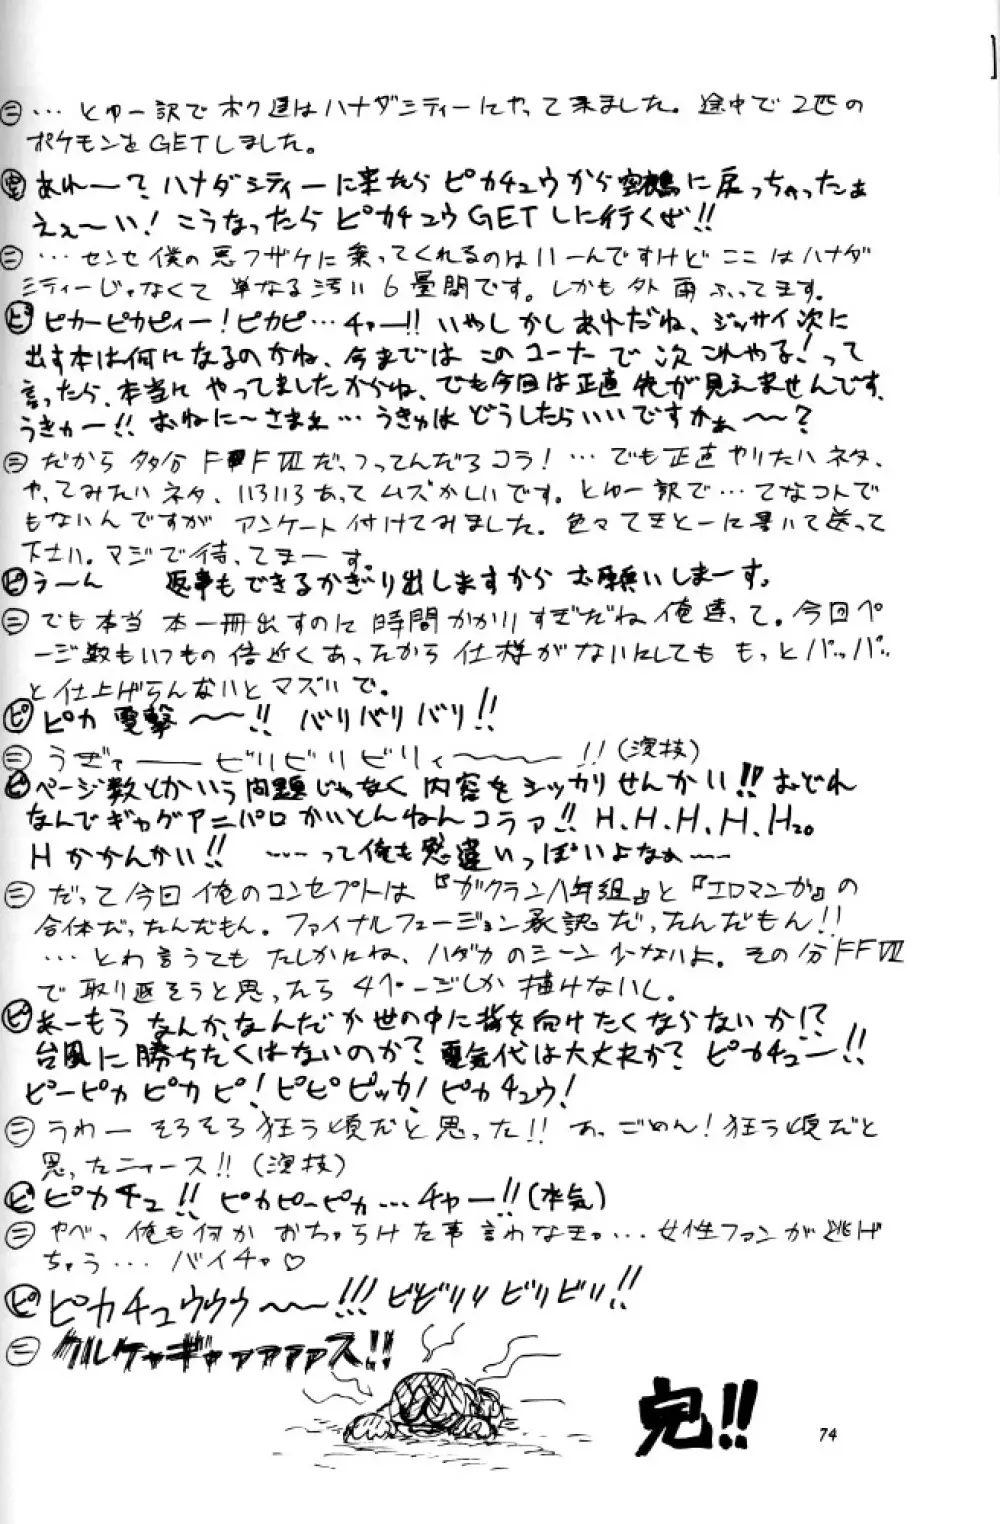 ㊁…とゆー訳でボク達はハナダシティーにやって来ました。途中で2匹の
ポケモンをGETしました。
㊢あれ〜? ハナダシティーに来たらピカチュウから空鶴に戻っちゃったぁ
えぇ〜い! こうなったらピカチュウGETしに行くぜ!!
㊁…センセ僕の悪フザケに乗ってくれるのはいーんですけどここはハナダ
シティーじゃなくて単なる汚い6畳間です。しかも外雨ふってます。
ピ ピカーピカピィー!ピカピ…チャー!! いやしかしあれだね、ジッサイ次に
出す本は何になるのかね、今まではこのコーナーで次これやる!って
言ったら、本当にやってましたからね、でも今回は正直先が見えませんです、
うきゅー!! おねに〜さまぁ…うきゅはどうしたらいいですかぁ〜〜?
㊁だから多分FFⅦだっつってんだろコラ! …でも正直やりたいネタ、
やってみたいネタ、いろいろあってムズかしいです。とゆー訳で…てなコトで
もないんですがアンケート付けてみました。色々てきとーに書いて送って
下さい。マジで待ってまーす。
ピ う〜ん 返事もできるかぎり出しますからお願いしまーす。
㊁でも本当本一冊出すのに時間かかりすぎだね俺達って。今回ペ
ージ数もいつもの倍近くあったから仕様がないにしてももっとパッパッ
と仕上げらんないとマズいで。
ピ ピカ電撃〜〜!! バリバリバリ!!
㊁うぎゃーービリビリビリィ〜〜〜!!(演技)
ピ ページ数とかいう問題じゃなく内容をシッカリせんかい!! おどれ
なんでギャグアニパロかいとんねんコラァ!! H、H、H、H、H20
Hかかんかい!! ……って俺も勘違いっぽいよなぁ〜〜
㊁だって今回俺のコンセプトは『ガクラン八年組』と『エロマンガ』の
合体だったんだもん。ファイナルフュージョン承認だったんだもん!!
…とわ言うてもたしかにね、ハダカのシーン少ないよ。その分FFⅦ
で取り返そうと思ったら4ページしか描けないし。
ピ あーもうなんか、なんだか世の中に背を向けたくならないか!?
台風に勝ちたくはないのか? 電気代は大丈夫か? ピカチュー!!
ピーピカピカピ!ピピピッカ!ピカチュウ!
㊁うわーそろそろ狂う頃だと思った!! あ、ごめん!狂う頃だと
思ったニャース!!(演技)
ピ ピカチュ!! ピカピーピカ…チャー!!(本気)
㊁やべっ俺も何かおちゃらけた事言わなきゃ…女性ファンが逃げ
ちゃう…バイチャ♡
ピ ピカチュウウウ〜〜!!! ビビリリビリビリ!!
㊁クルケャギャァァァァァス!!
完!!
74